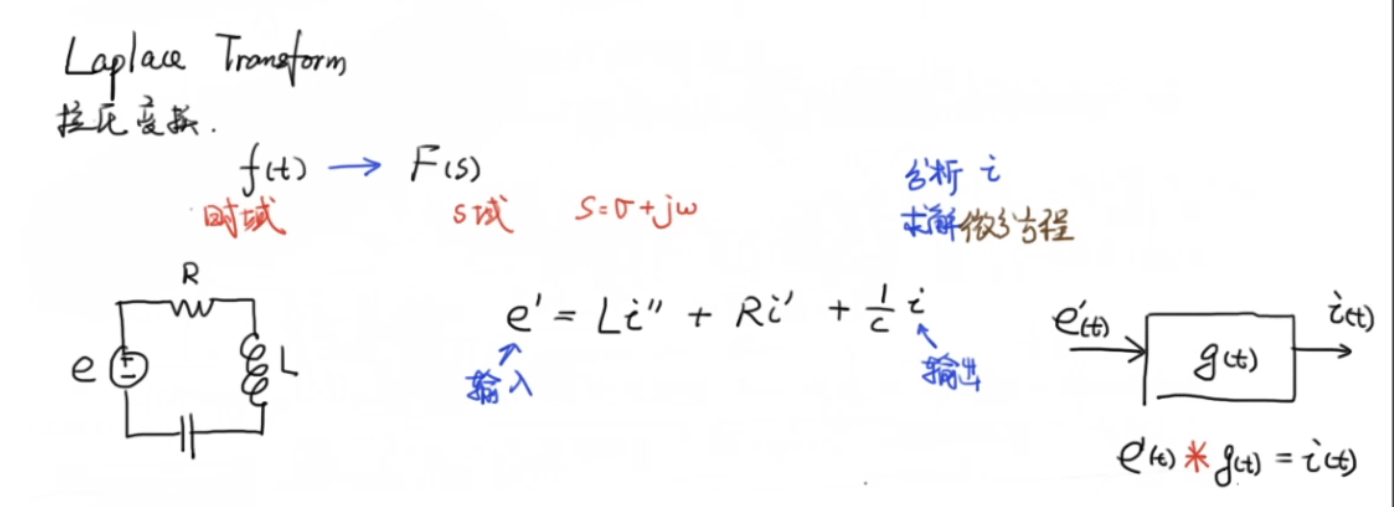 Laplace Transform
拉氏变换.
f(t) → F(s)
时域 s域 s=σ+jω
分析 i
求解微分方程
R
e
L
e' = Li'' + Ri' + 1/c i
输入
输出
e'(t)
g(t)
i(t)
e'(t) * g(t) = i(t)